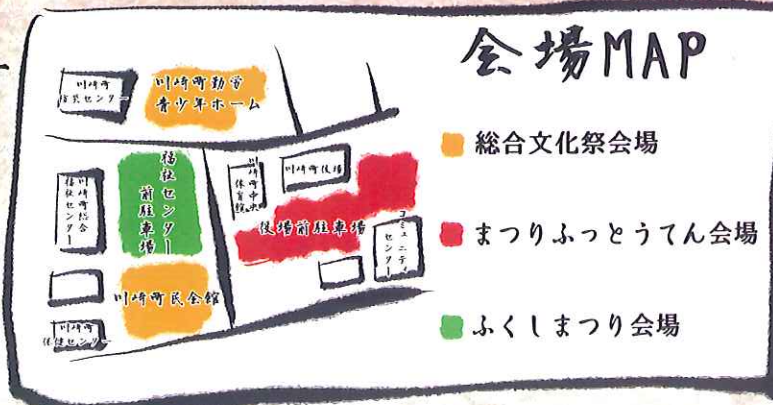 会場MAP
総合文化祭会場
まつりふっとうてん会場
ふくしまつり会場
川崎町
防災センター
川崎町勤労
青少年ホーム
川崎町総合
福祉センター
福祉センター
前駐車場
川崎町中央
体育館
川崎町役場
役場前駐車場
コミュニティ
センター
川崎町民会館
川崎町
保健センター